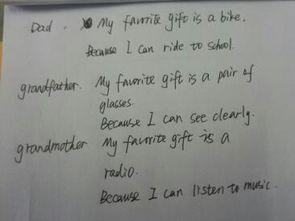 Dad. My favorite gift is a bike.
Because I can ride to school.
grandfather. My favorite gift is a pair of
glasses.
Because I can see clearly.
grandmother My favorite gift is a
radio.
Because I can listen to music.